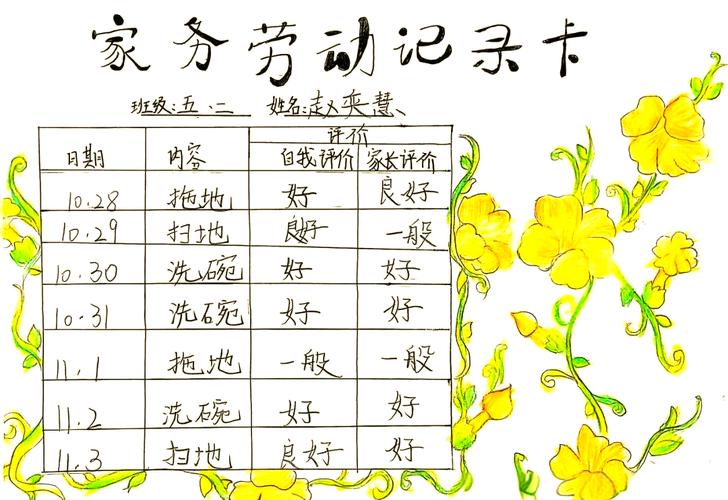 家务劳动记录卡
班级:五.二 姓名:赵奕慧
日期 内容 评价
自我评价 家长评价
10.28 拖地 好 良好
10.29 扫地 良好 一般
10.30 洗碗 好 好
10.31 洗碗 好 好
11.1 拖地 一般 一般
11.2 洗碗 好 好
11.3 扫地 良好 好